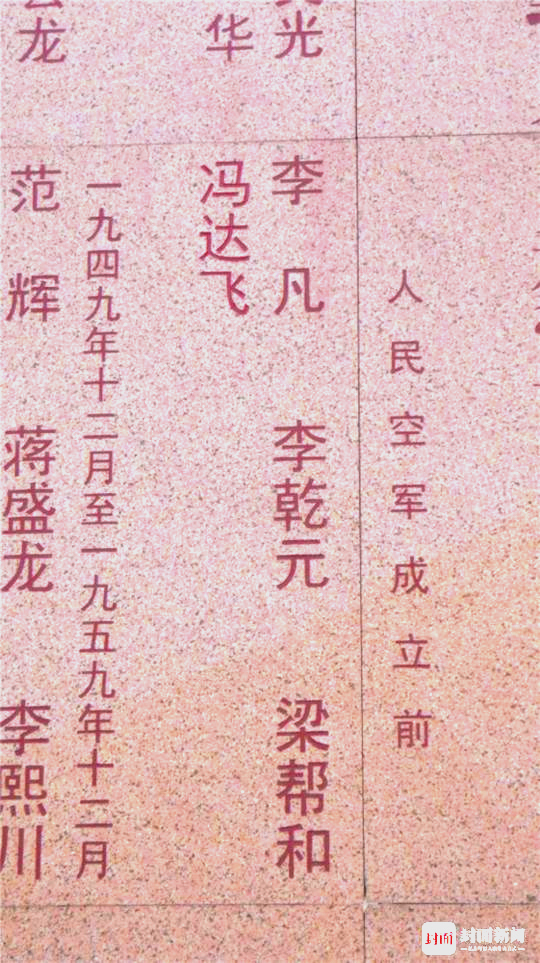 人民空军成立前
光 李凡 李乾元 梁帮和
华 冯达飞
一九四九年十二月至一九五九年十二月
龙 范辉 蒋盛龙 李熙川
封面
封面新闻